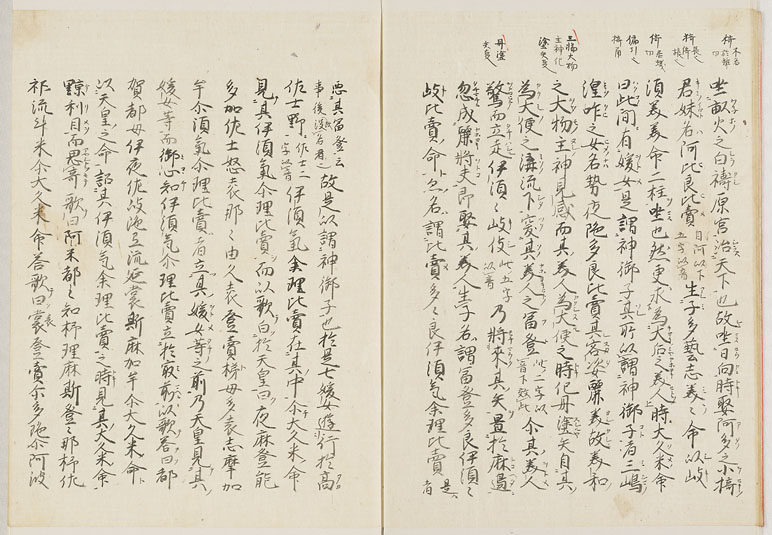 坐畝火之白檮原宮治天下也故坐日向時娶阿多之小椅
君妹名阿比良比賣自阿以下五字以音生子多藝志美々命次岐
須美美命二柱坐也然更求為大后之美人時大久米命
曰此間有媛女是謂神御子其所以謂神御子者三嶋
湟咋之女名勢夜陀多良比賣其容姿麗美故美和
之大物主神見感而其美人為大便之時化丹塗矢自其
為大便之溝流下突其美人之冨登此二字以音下效此尒其美人
驚而立走伊須々岐伎此五字以音乃將来其矢置於麻邊
忽成麗將夫即娶其美人生子名謂冨登多多良伊須々
岐比賣命亦名謂比賣多々良伊須氣余理比賣是者
悪其冨登云事後改名者故是以謂神御子也於是七媛女遊行於高
佐士野佐士二字以音伊須氣余理比賣在其中尒大久米命
見其伊須氣余理比賣而以歌白於天皇曰夜麻登能
多加佐士怒袁那々由久袁登賣梯母多袁志摩加
牟尒伊須氣余理比賣者立其媛女等之前乃天皇見其
媛女等而御心知伊須氣余理比賣立於最前以歌答曰都
賀都母伊夜佐岐陀弖流延袁斯麻加牟尒大久米命
以天皇之命詔其伊須氣余理比賣之時見其大久米命
黥利目而思奇歌曰阿米都々知杼理麻斯登々那杼佐
祁流斗米尒大久米命答歌曰袁登賣尒多陀尒阿波